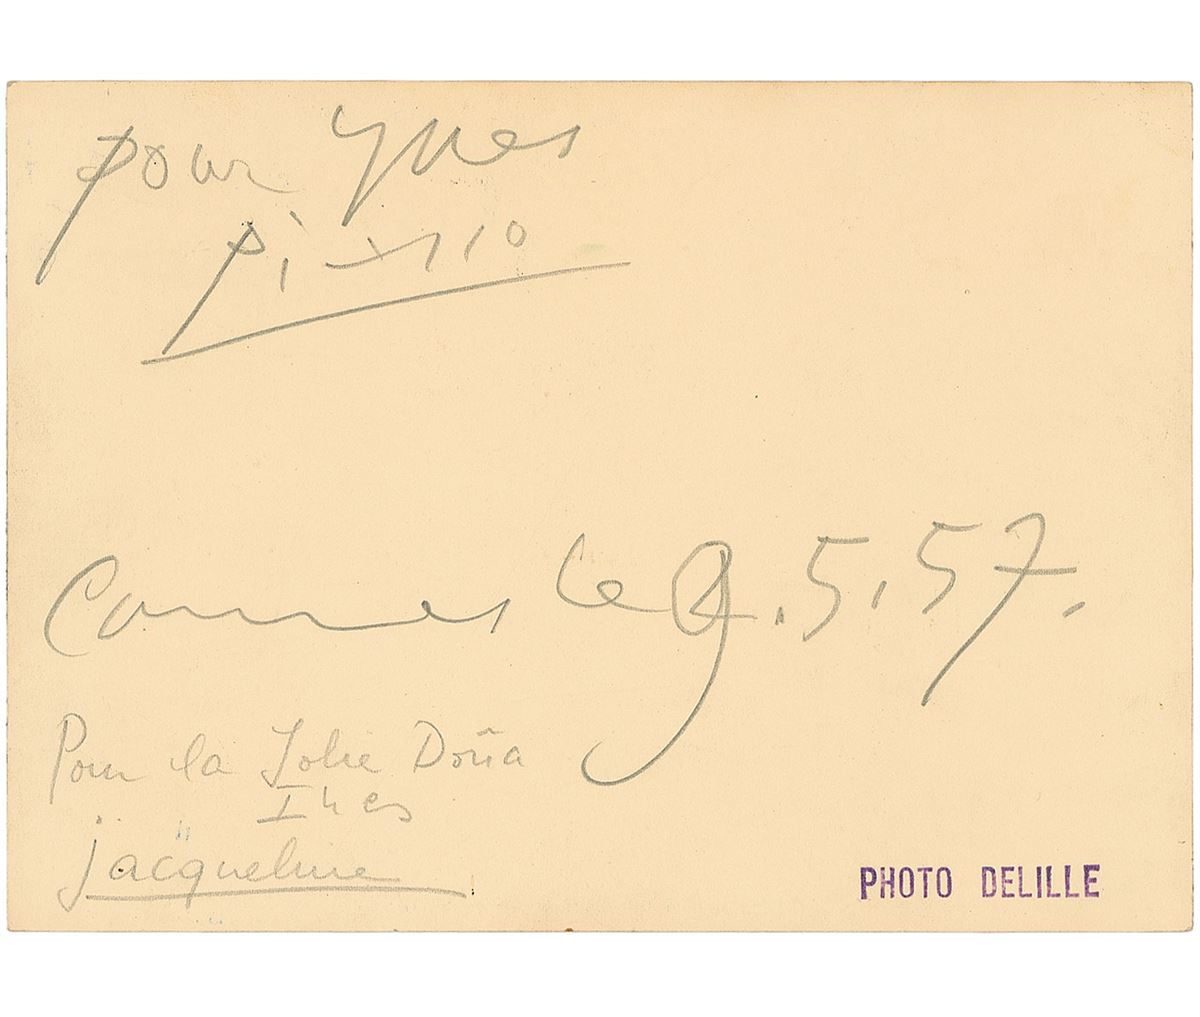 pour Yves
Picasso
Cannes le 9.5.57.
Pour la Jolie Doña
Ines
jacqueline
PHOTO DELILLE